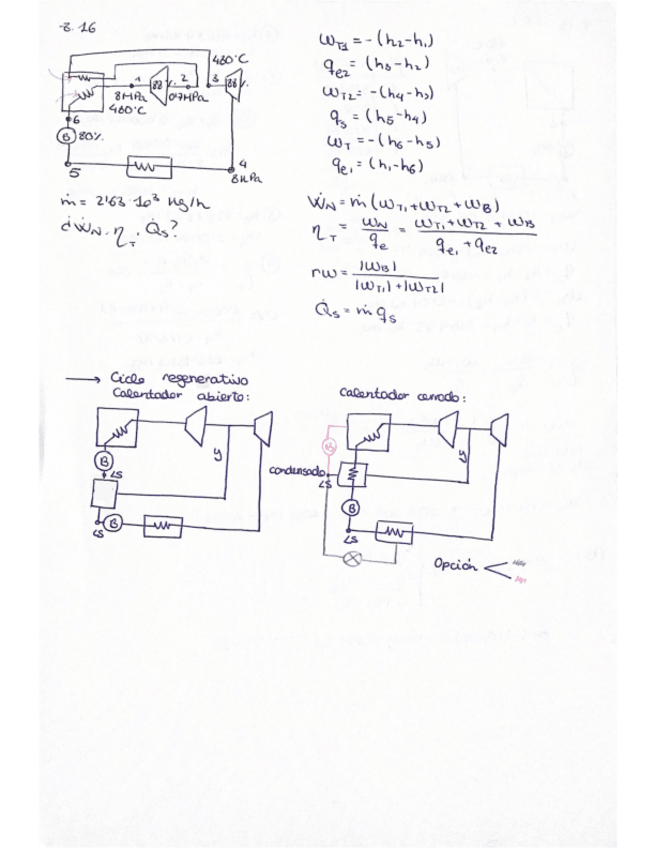 8.16
480°C
1
88%
2
3
88%
8MPa
0'7MPa
480°C
6
B 80%
5
4
8KPa
ṁ = 2'63·10³ kg/h
¿ẆN, ηT, Q̇s?
ωT1 = -(h2-h1)
qe2 = (h3-h2)
ωT2 = -(h4-h3)
qs = (h5-h4)
ωT = -(h6-h5)
qe1 = (h1-h6)
ẆN = ṁ(ωT1+ωT2+ωB)
ηT = ωN/qe = (ωT1+ωT2+ωB)/(qe1+qe2)
rw = |ωB|/(|ωT1|+|ωT2|)
Q̇s = ṁ qs
→ Ciclo regenerativo
Calentador abierto:
y
B
LS
LS
B
Calentador cerrado:
B
y
condensado
LS
B
LS
Opción <